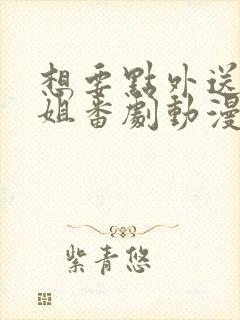 想要點外送
姐番劇動漫
紫青悠